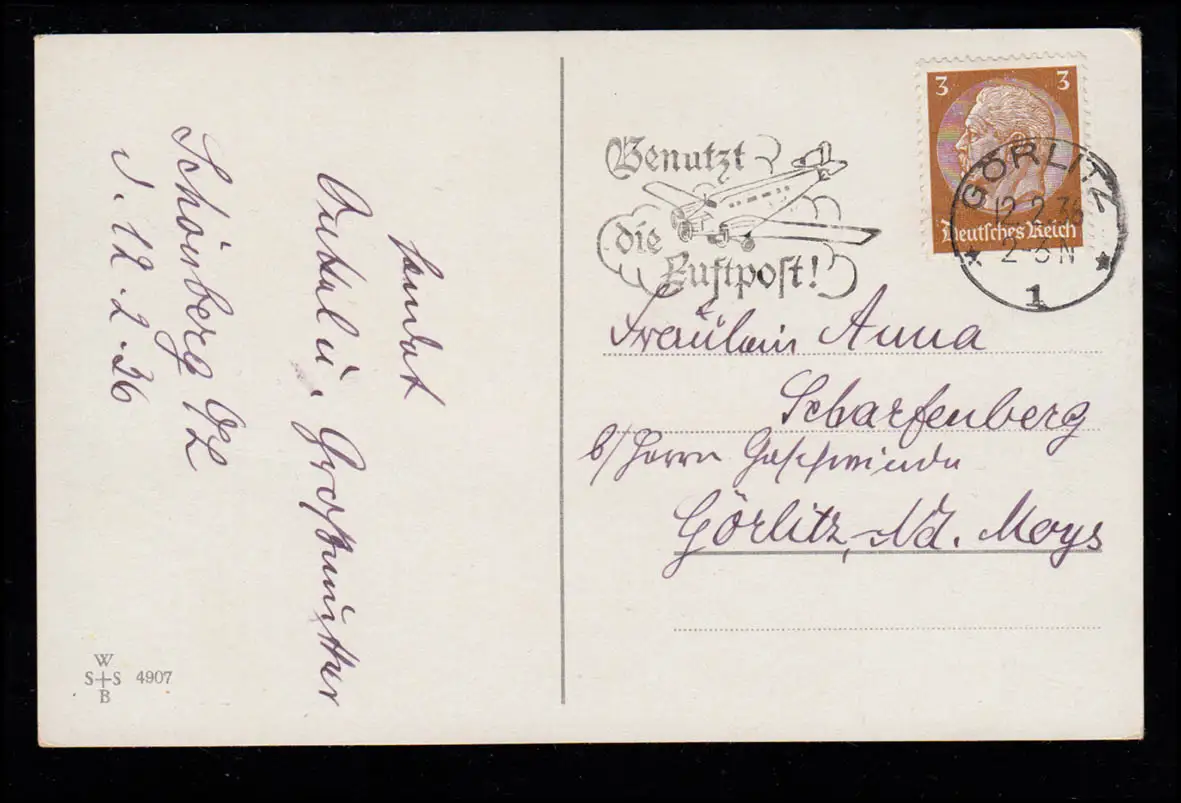 Schönberg OL
d. 12.2.36
sendet
Onkel u. Großmutter
W
S+S 4907
B
Benutzt
die
Luftpost!
3 3
Deutsches Reich
GÖRLITZ
12.2.36
2-3 N
* *
1
Fräulein Anna
Scharfenberg
b/ Herrn Geschwinde
Görlitz, Nd. Moys